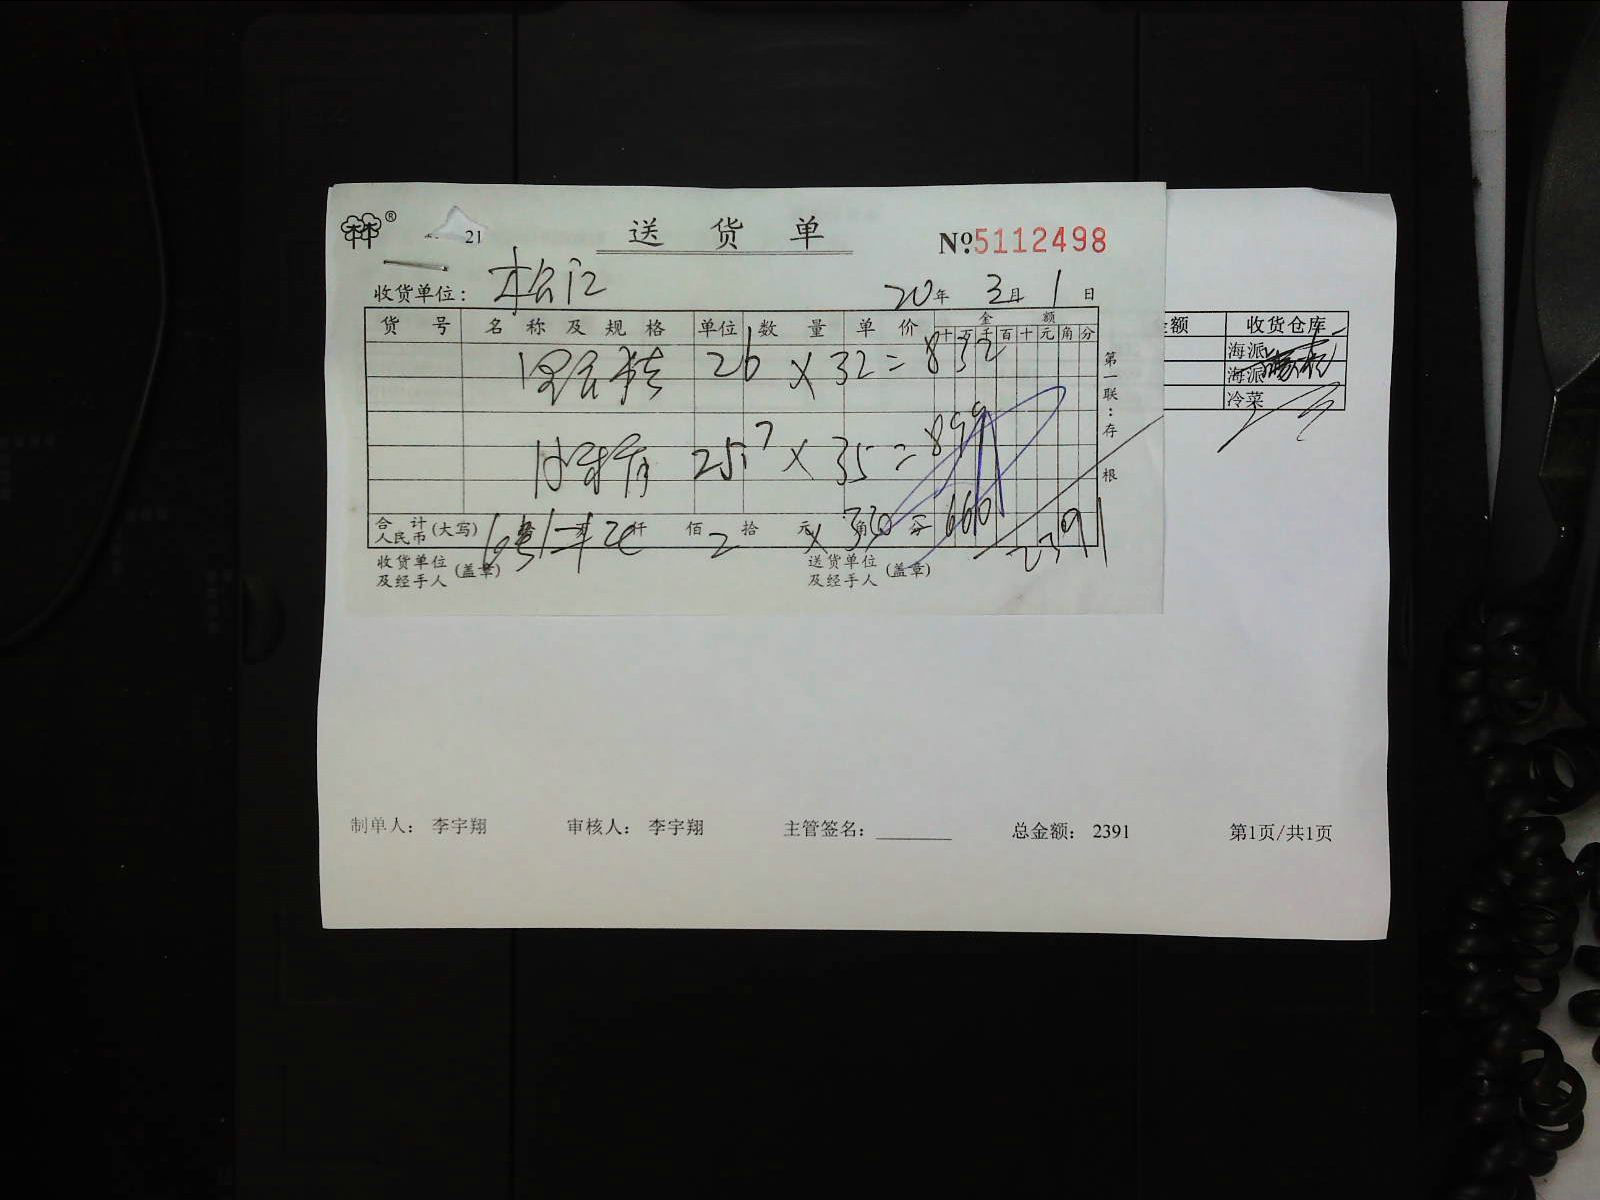 21
送货单
Nº.5112498
收货单位: 松江
20年 3月 1日
货号 名称及规格 单位 数量 单价 金额
十万千百十元角分
26 × 32 = 832
257 × 35 = 899
合计人民币(大写) 仟 佰 拾 元 角 分
2 × 330 = 660
2391
收货单位及经手人(盖章)
送货单位及经手人(盖章)
第一联:存根
额 收货仓库
海派
海派
冷菜
制单人: 李宇翔 审核人: 李宇翔 主管签名: 总金额: 2391 第1页/共1页